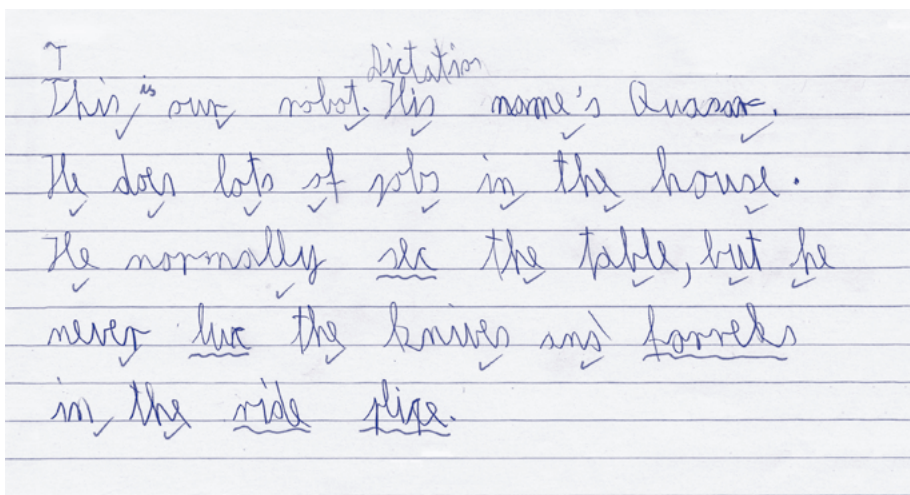 T
Dictation
This is our robot. His name's Quasar.
He does lots of jobs in the house.
He normally sec the table, but he
never lux the knives and forreks
in the ride plize.